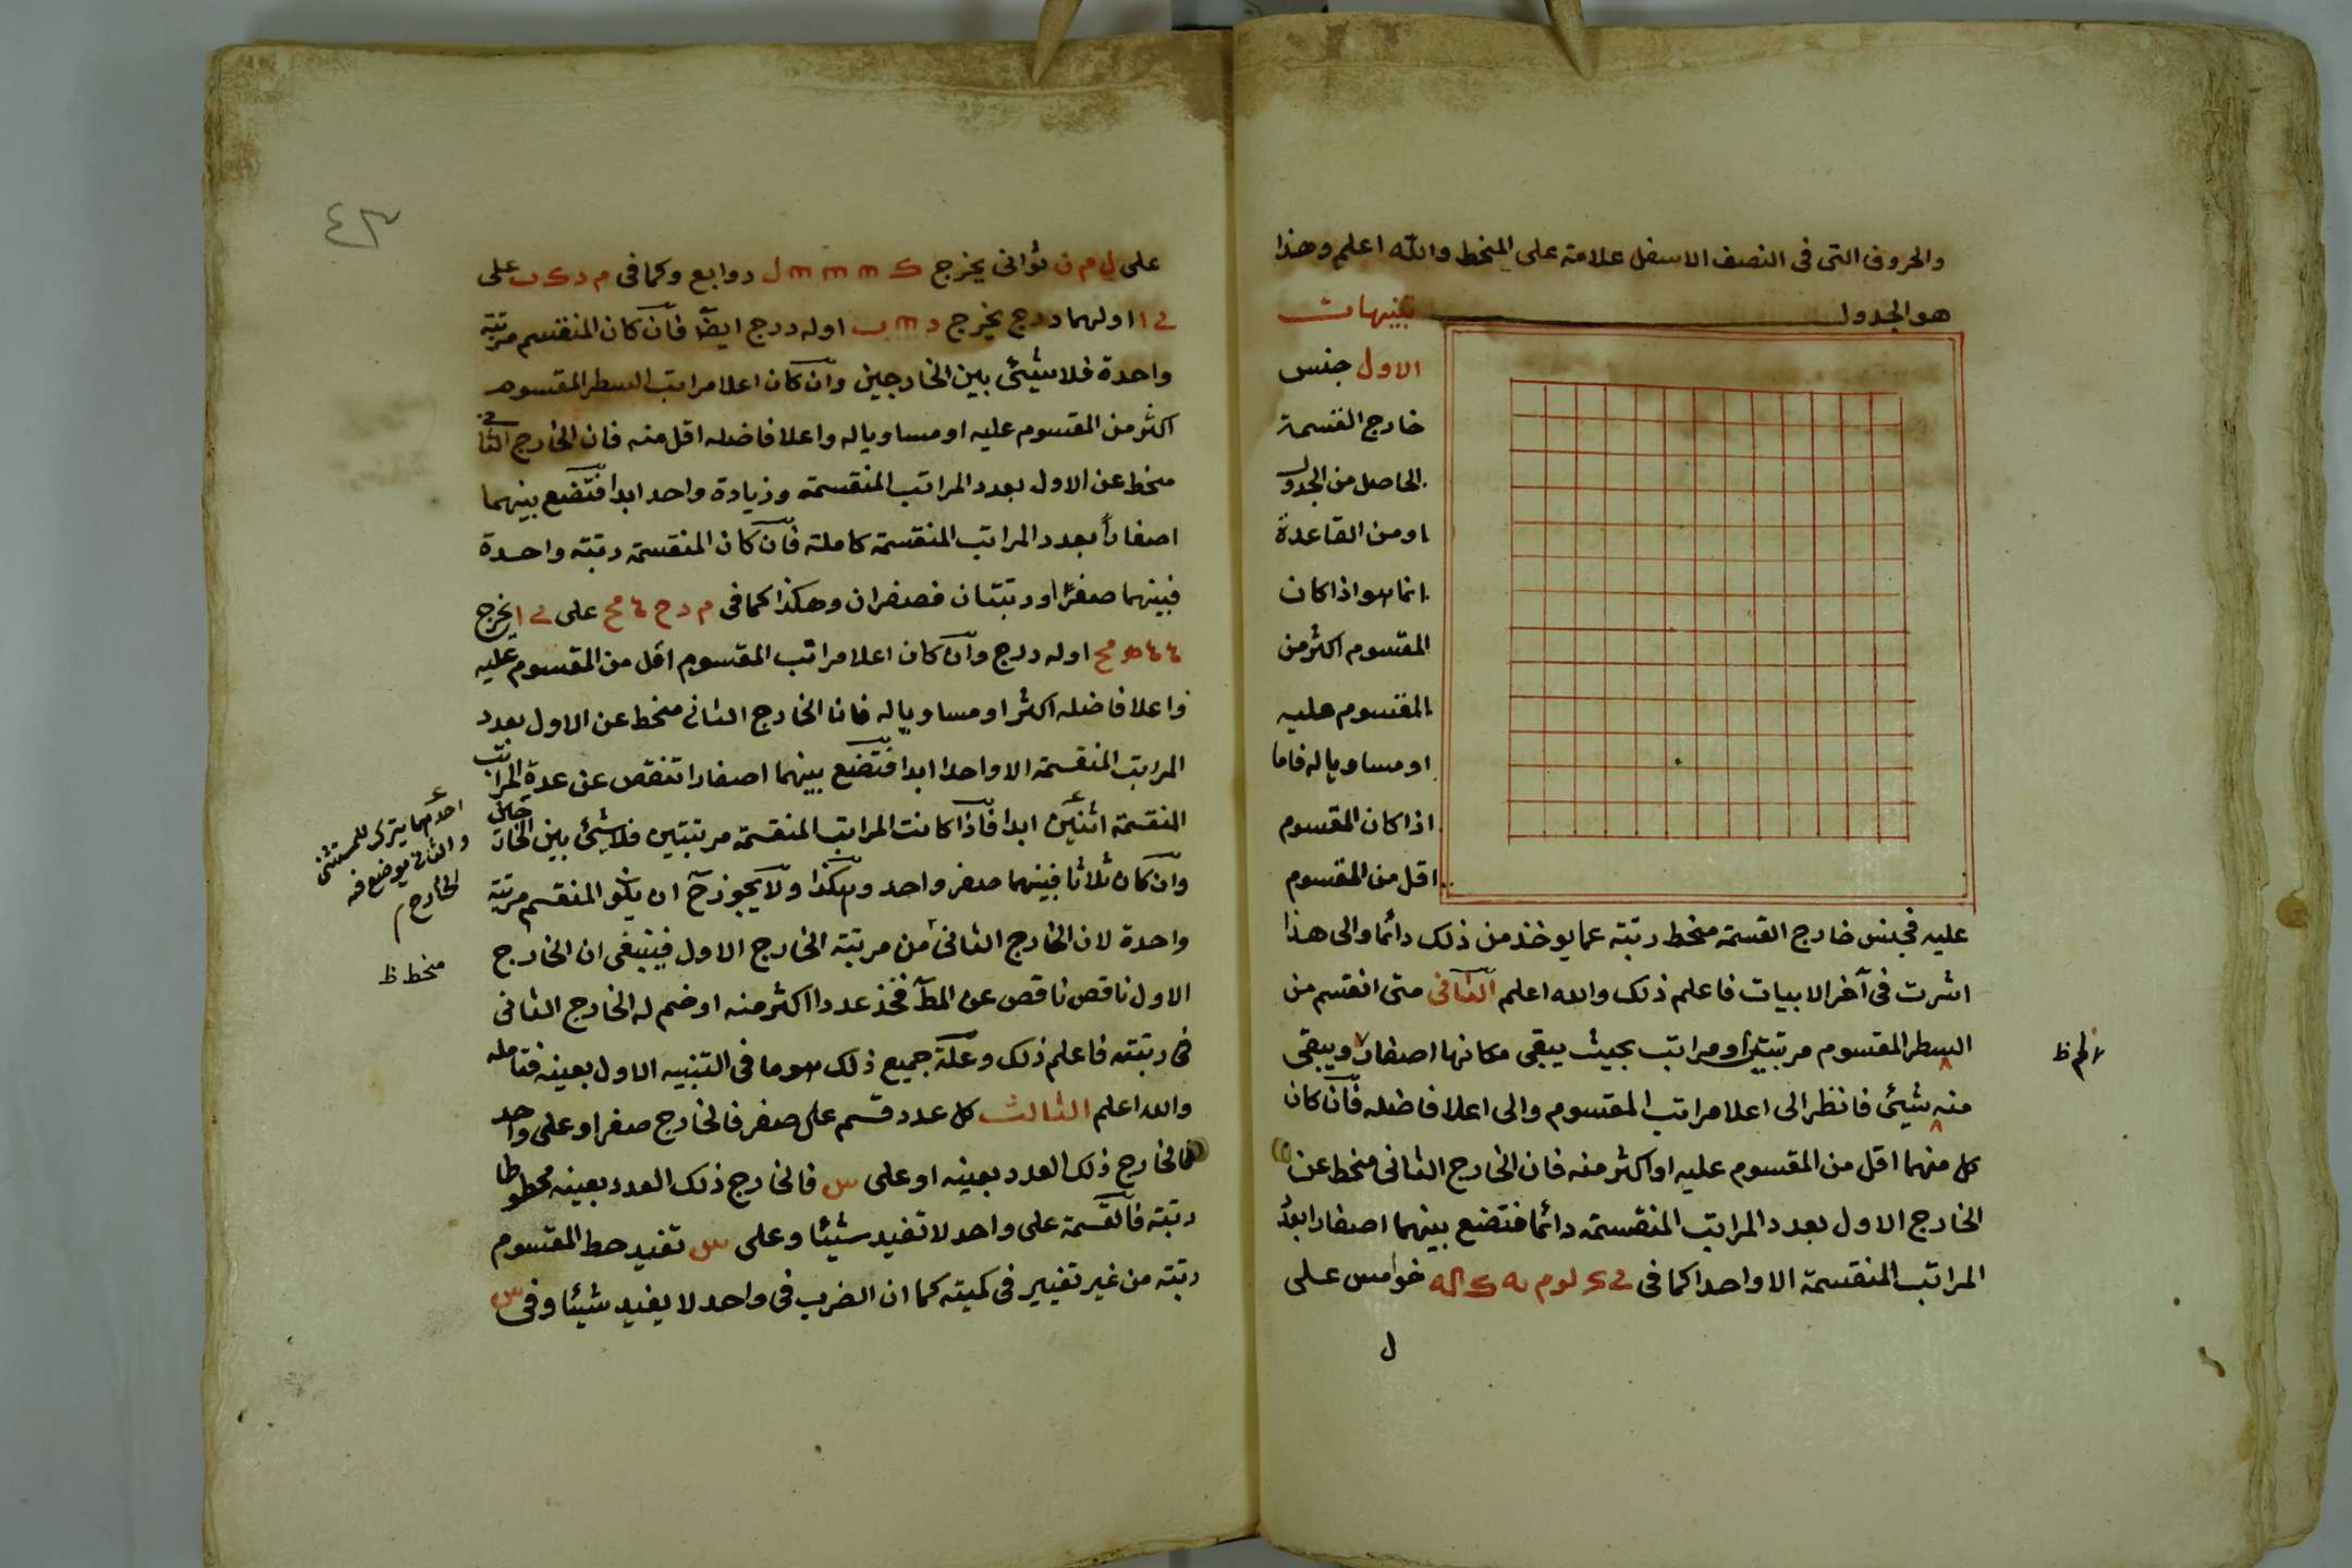 والحروف التى فى النصف الاسفل علامة على المنحط والله اعلم وهذا
هو الجدول
تنبيهات
الاول جنس
خارج القسمة
الحاصل من الجدول
او من القاعدة
انما هو اذا كان
المقسوم اكثر من
المقسوم عليه
او مساويا له فاما
اذا كان المقسوم
اقل من المقسوم
عليه فجنس خارج القسمة منحط رتبة عما يوخذ من ذلك دائما والى هذا
اشرت فى آخر الابيات فاعلم ذلك والله اعلم الثانى متى انقسم من
السطر المقسوم مرتبتين او مراتب بحيث يبقى مكانها اصفار ويبقى
منه شيئ فانظر الى اعلا مراتب المقسوم والى اعلا فاضله فان كان
كل منهما اقل من المقسوم عليه او اكثر منه فان الخارج الثانى منحط عن
الخارج الاول بعدد المراتب المنقسمة دائما فتضع بينهما اصفارا بعدد
المراتب المنقسمة الا واحدا كما فى خوامس على
ل
٤٣
على ل م ن ثوانى يخرج روابع وكما فى م د ك ب على
اولهما درج يخرج اوله درج ايضا فان كان المنقسم مرتبة
واحدة فلا شيئ بين الخارجين وان كان اعلا مراتب السطر المقسوم
اكثر من المقسوم عليه او مساويا له واعلا فاضله اقل منه فان الخارج الثانى
منحط عن الاول بعدد المراتب المنقسمة وزيادة واحد ابدا فتضع بينهما
اصفارا بعدد المراتب المنقسمة كاملة فان كان المنقسمة رتبة واحدة
فبينهما صفرا او رتبتان فصفران وهكذا كما فى على يخرج
اوله درج وان كان اعلا مراتب المقسوم اقل من المقسوم عليه
واعلا فاضله اكثر او مساويا له فان الخارج الثانى منحط عن الاول بعدد
المراتب المنقسمة الا واحدا ابدا فتضع بينهما اصفارا تنقص عن عدة المراتب
المنقسمة اثنين ابدا فاذا كانت المراتب المنقسمة مرتبتين فلا شيئ بين الخارجين
وان كان ثلاثا فبينهما صفر واحد وهكذا ولا يجوز ح ان يكو المنقسم مرتبة
واحدة لان الخارج الثانى من مرتبة الخارج الاول فينبغى ان الخارج
الاول ناقص ناقص عن المط فخذ عددا اكثر منه او ضم له الخارج الثانى
فى رتبته فاعلم ذلك وعلة جميع ذلك هو ما فى التنبيه الاول بعينه فتامله
والله اعلم الثالث كل عدد قسم على صفر فالخارج صفرا او على واحد
فالخارج ذلك العدد بعينه او على س فالخارج ذلك العدد بعينه محطوطا
رتبة فالقسمة على واحد لا تفيد شيئا وعلى س تفيد حط المقسوم
رتبة من غير تغيير فى كميته كما ان الضرب فى واحد لا يفيد شيئا وفى س
احدهما يترك للمستثنى
والثانى يوضع فيه
الخارج
منحط ظ